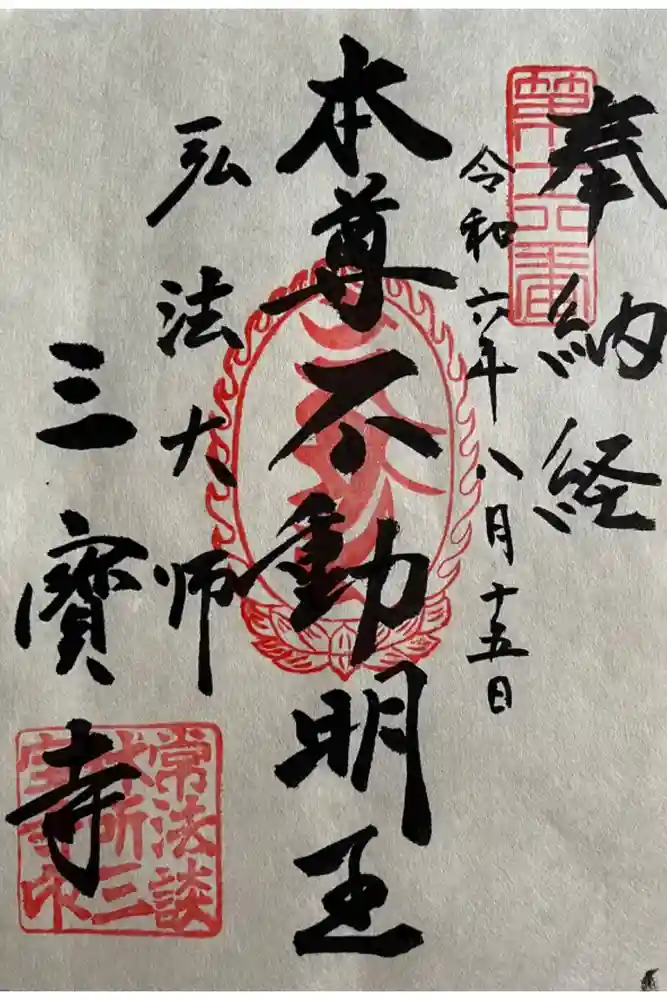 奉納経
令和六年八月十五日
本尊不動明王
弘法大師
三寳寺
常法談
林所三
宝寺印